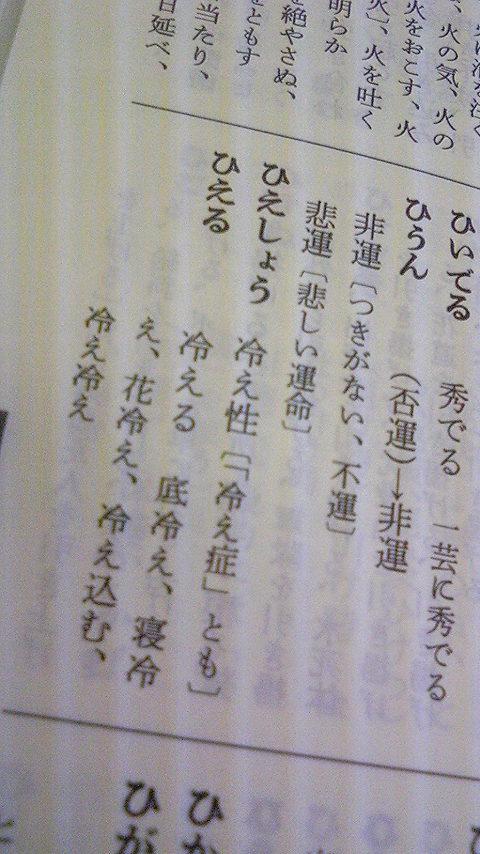 、火の気、火の
火をおこす、火
火」、火を吐く
明らか
を絶やさぬ、
をともす
当たり、
日延べ、
ひいでる　秀でる　一芸に秀でる
ひうん　（否運）→非運
非運〔つきがない、不運〕
悲運〔悲しい運命〕
ひえしょう　冷え性〔「冷え症」とも〕
ひえる　冷える　底冷え、寝冷
え、花冷え、冷え込む、
冷え冷え
ひか
ひが